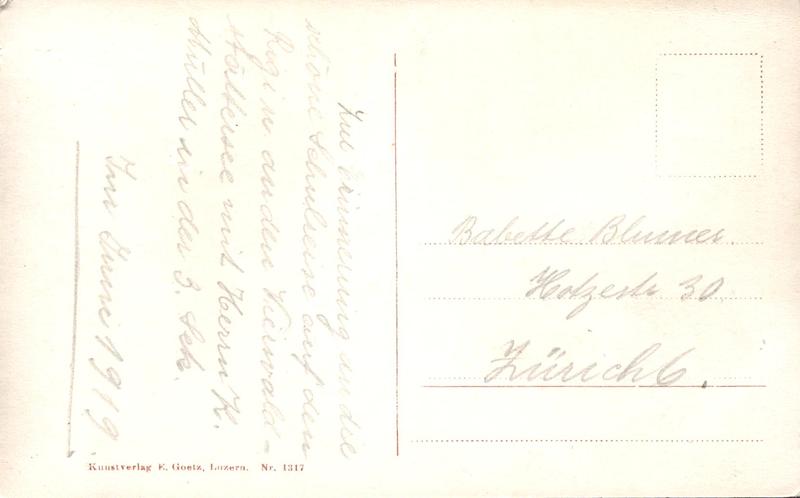 Zur Erinnerung an die
schöne Schulreise auf den
Rigi u. an den Vierwald-
stättersee mit Herrn K.
Müller in der 3. Sek.
Im Juni 1919
Babette Blumer.
Hotzestr. 30
Zürich 6.
Kunstverlag E. Goetz, Luzern. Nr. 1317